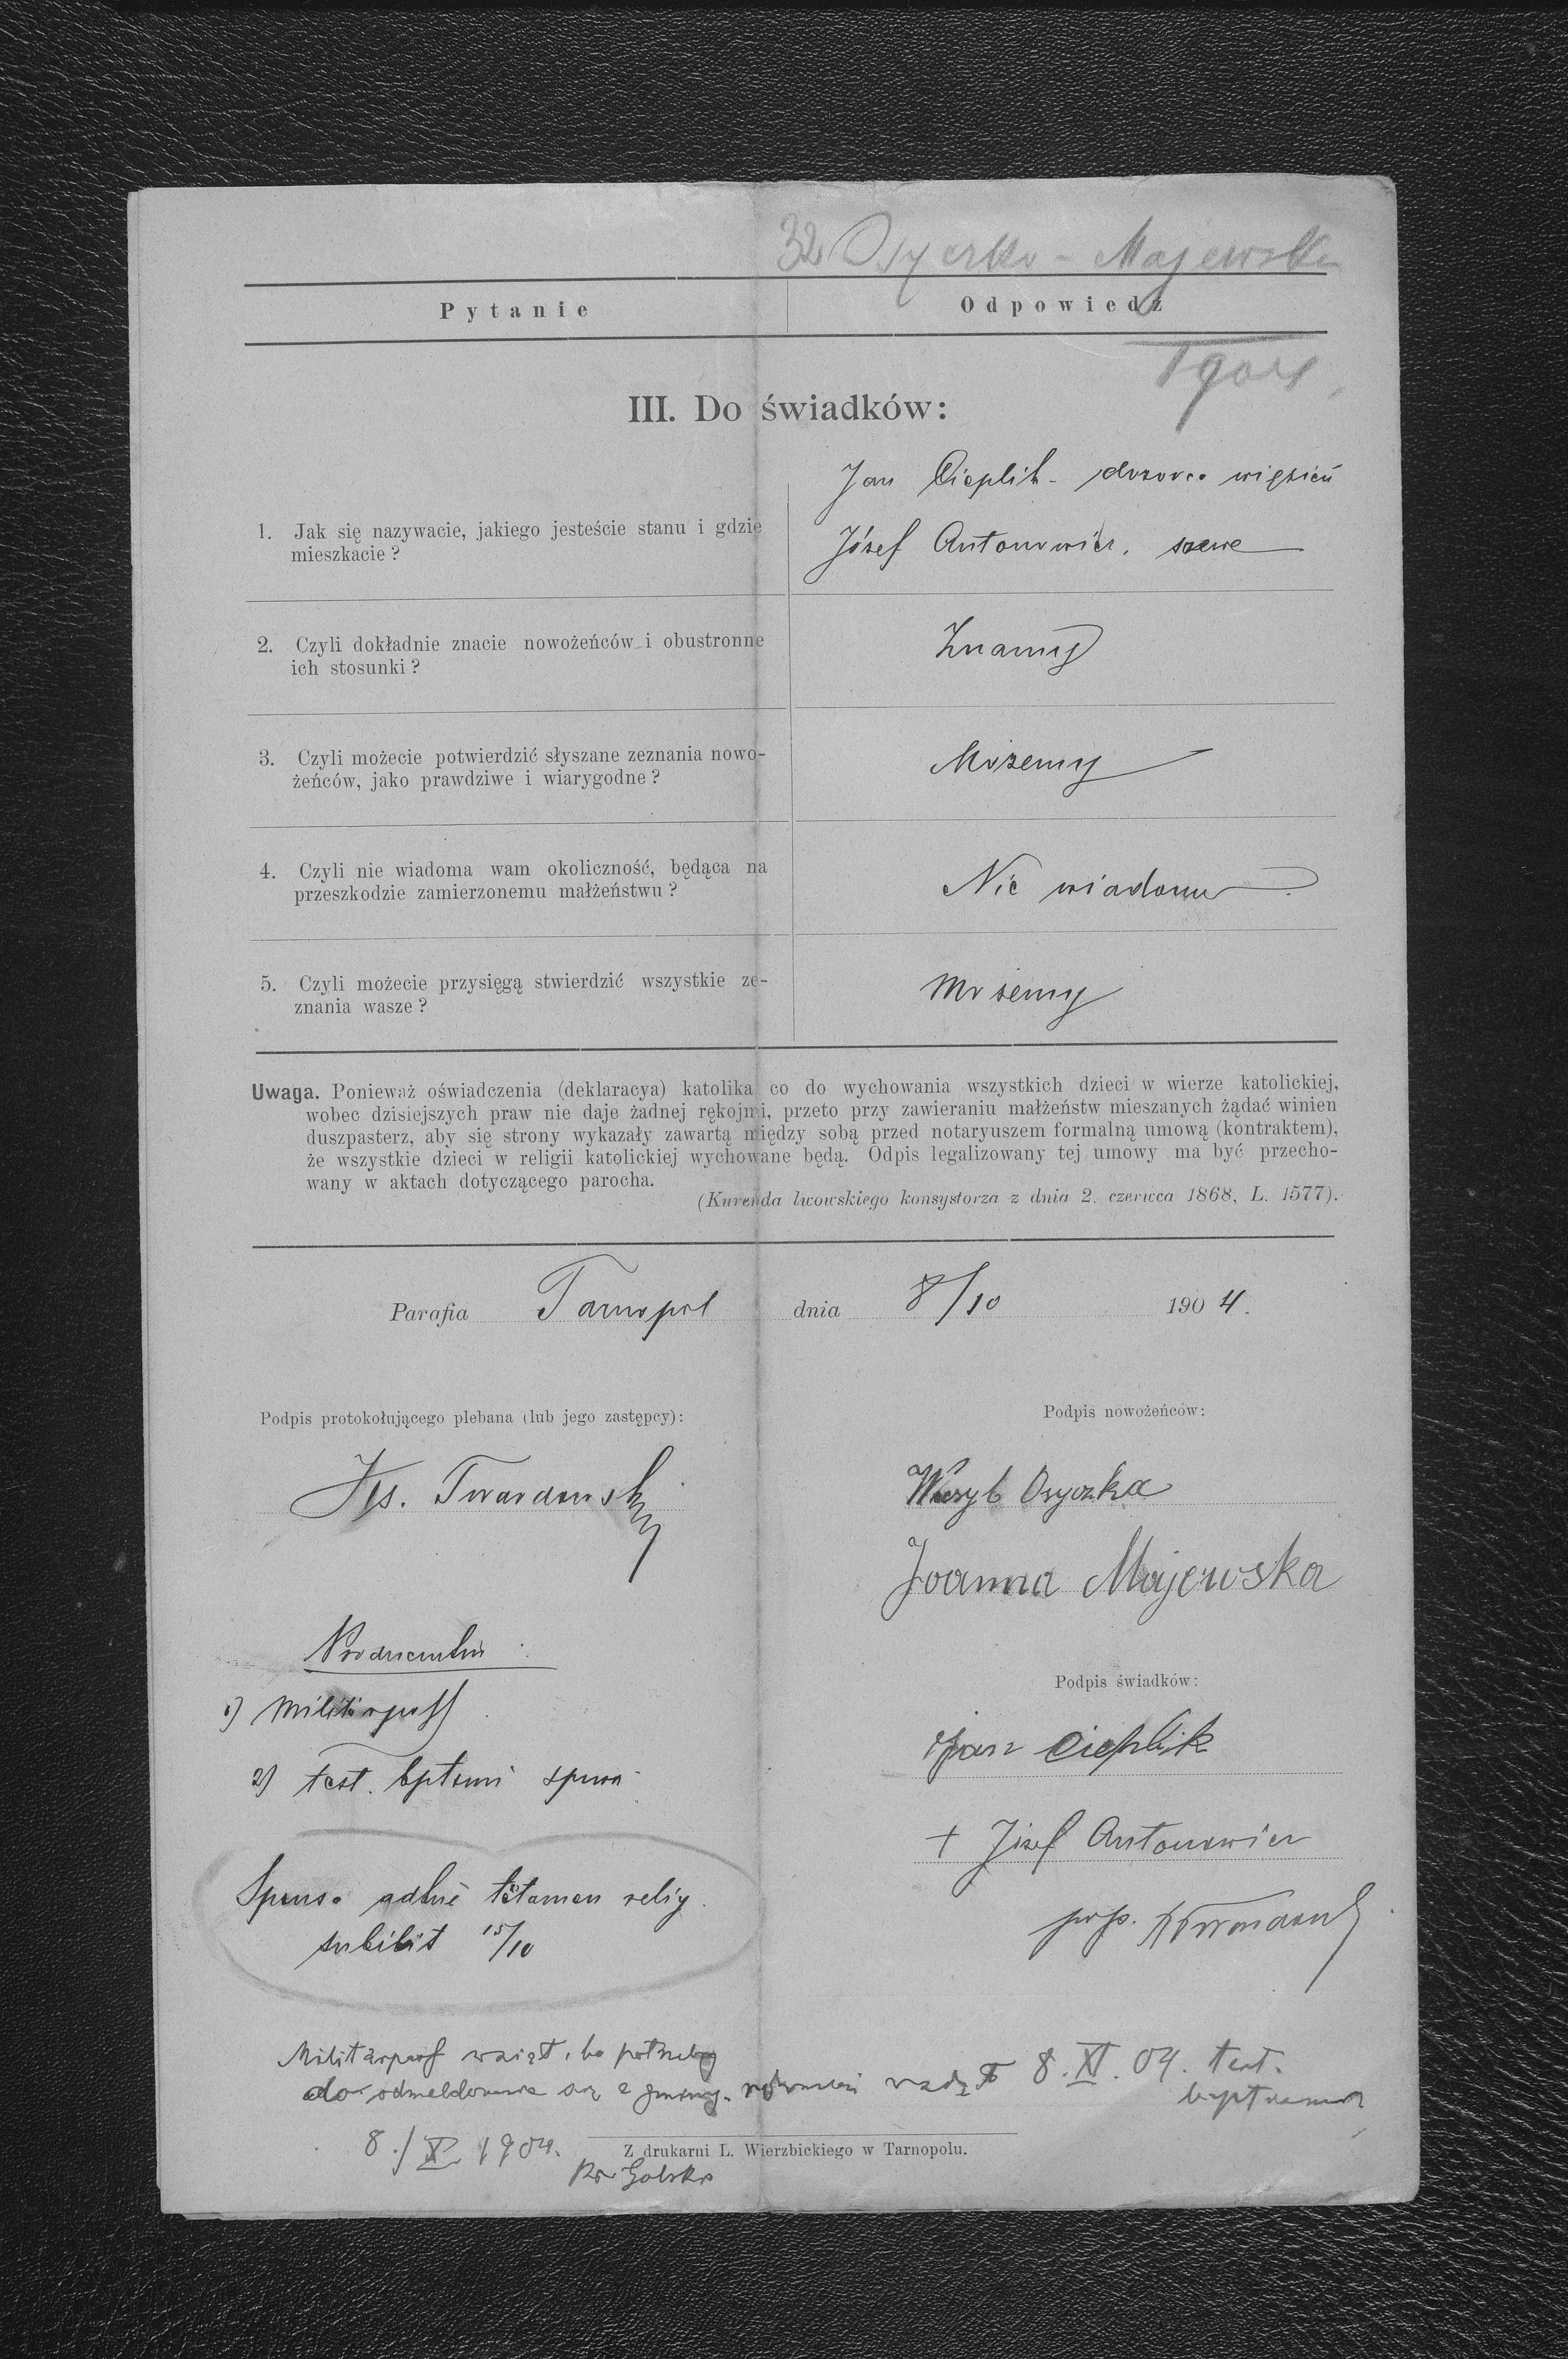 32 Osyczko - Majewska
Pytanie
Odpowiedź
1904
III. Do świadków:
Jan Cieplik - dozorca więzień
1. Jak się nazywacie, jakiego jesteście stanu i gdzie
mieszkacie?
Józef Antonowicz, szewc
2. Czyli dokładnie znacie nowożeńców i obustronne
ich stosunki?
Znamy
3. Czyli możecie potwierdzić słyszane zeznania nowo-
żeńców, jako prawdziwe i wiarygodne?
Możemy
4. Czyli nie wiadoma wam okoliczność, będąca na
przeszkodzie zamierzonemu małżeństwu?
Nie wiadoma
5. Czyli możecie przysięgą stwierdzić wszystkie ze-
znania wasze?
Możemy
Uwaga. Ponieważ oświadczenia (deklaracya) katolika co do wychowania wszystkich dzieci w wierze katolickiej,
wobec dzisiejszych praw nie daje żadnej rękojmi, przeto przy zawieraniu małżeństw mieszanych żądać winien
duszpasterz, aby się strony wykazały zawartą między sobą przed notaryuszem formalną umową (kontraktem),
że wszystkie dzieci w religii katolickiej wychowane będą. Odpis legalizowany tej umowy ma być przecho-
wany w aktach dotyczącego parocha.
(Kurenda lwowskiego konsystorza z dnia 2. czerwca 1868, L. 1577).
Parafia Tarnopol dnia 8/10 1904.
Podpis protokołującego plebana (lub jego zastępcy):
Podpis nowożeńców:
Twardowski
Wasyl Osyczka
Joanna Majewska
Producenda:
1) Militärpass
2) test. bptsmi spons
Podpis świadków:
Jan Cieplik
+ Józef Antonowicz
Sponso adhuc tentamen relig.
subibit 15/10
Militärpass wziął, bo potrzebny
do odmeldowania się z gminy
8. XI. 04. test.
8./X 1904.
Z drukarni L. Wierzbickiego w Tarnopolu.